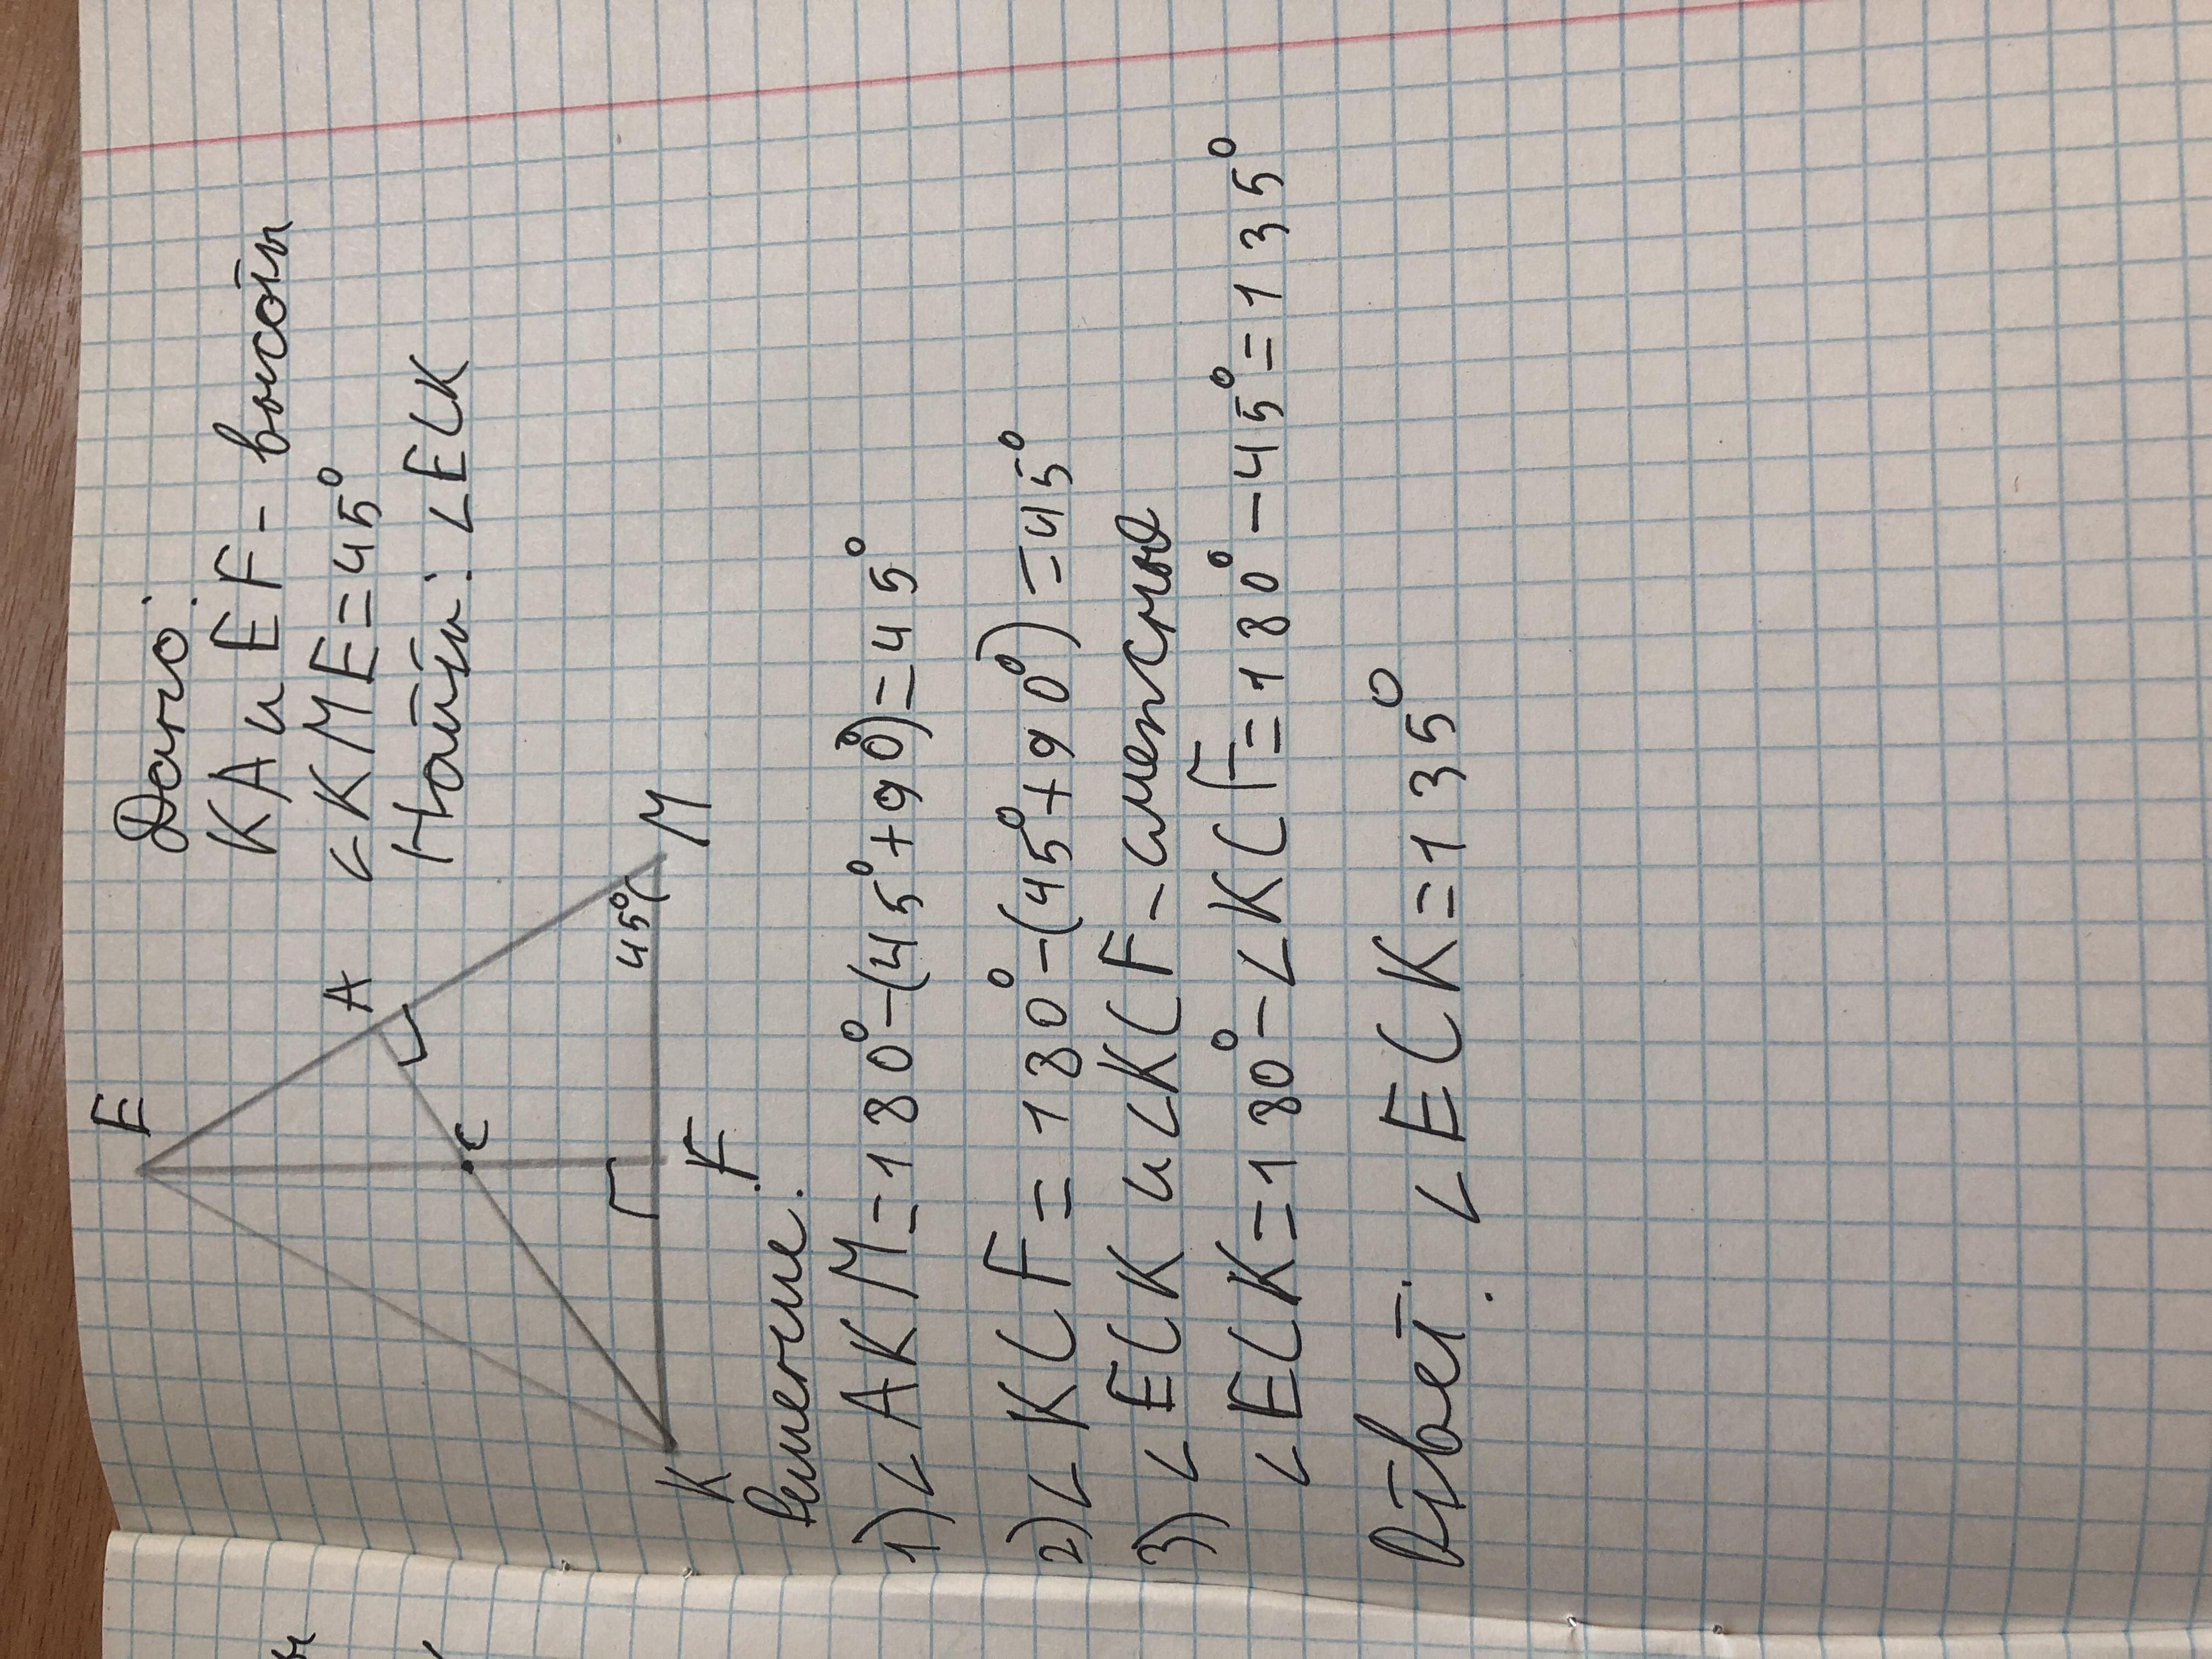 E
A
C
45°
K
F
M
Дано:
KA и EF - высоты
∠KME=45°
Найти: ∠ECK
Решение:
1) ∠AKM=180°-(45°+90°)=45°
2) ∠KCF=180°-(45°+90°)=45°
3) ∠ECK и ∠KCF - смежные
∠ECK=180°-∠KCF=180°-45°=135°
Ответ: ∠ECK=135°